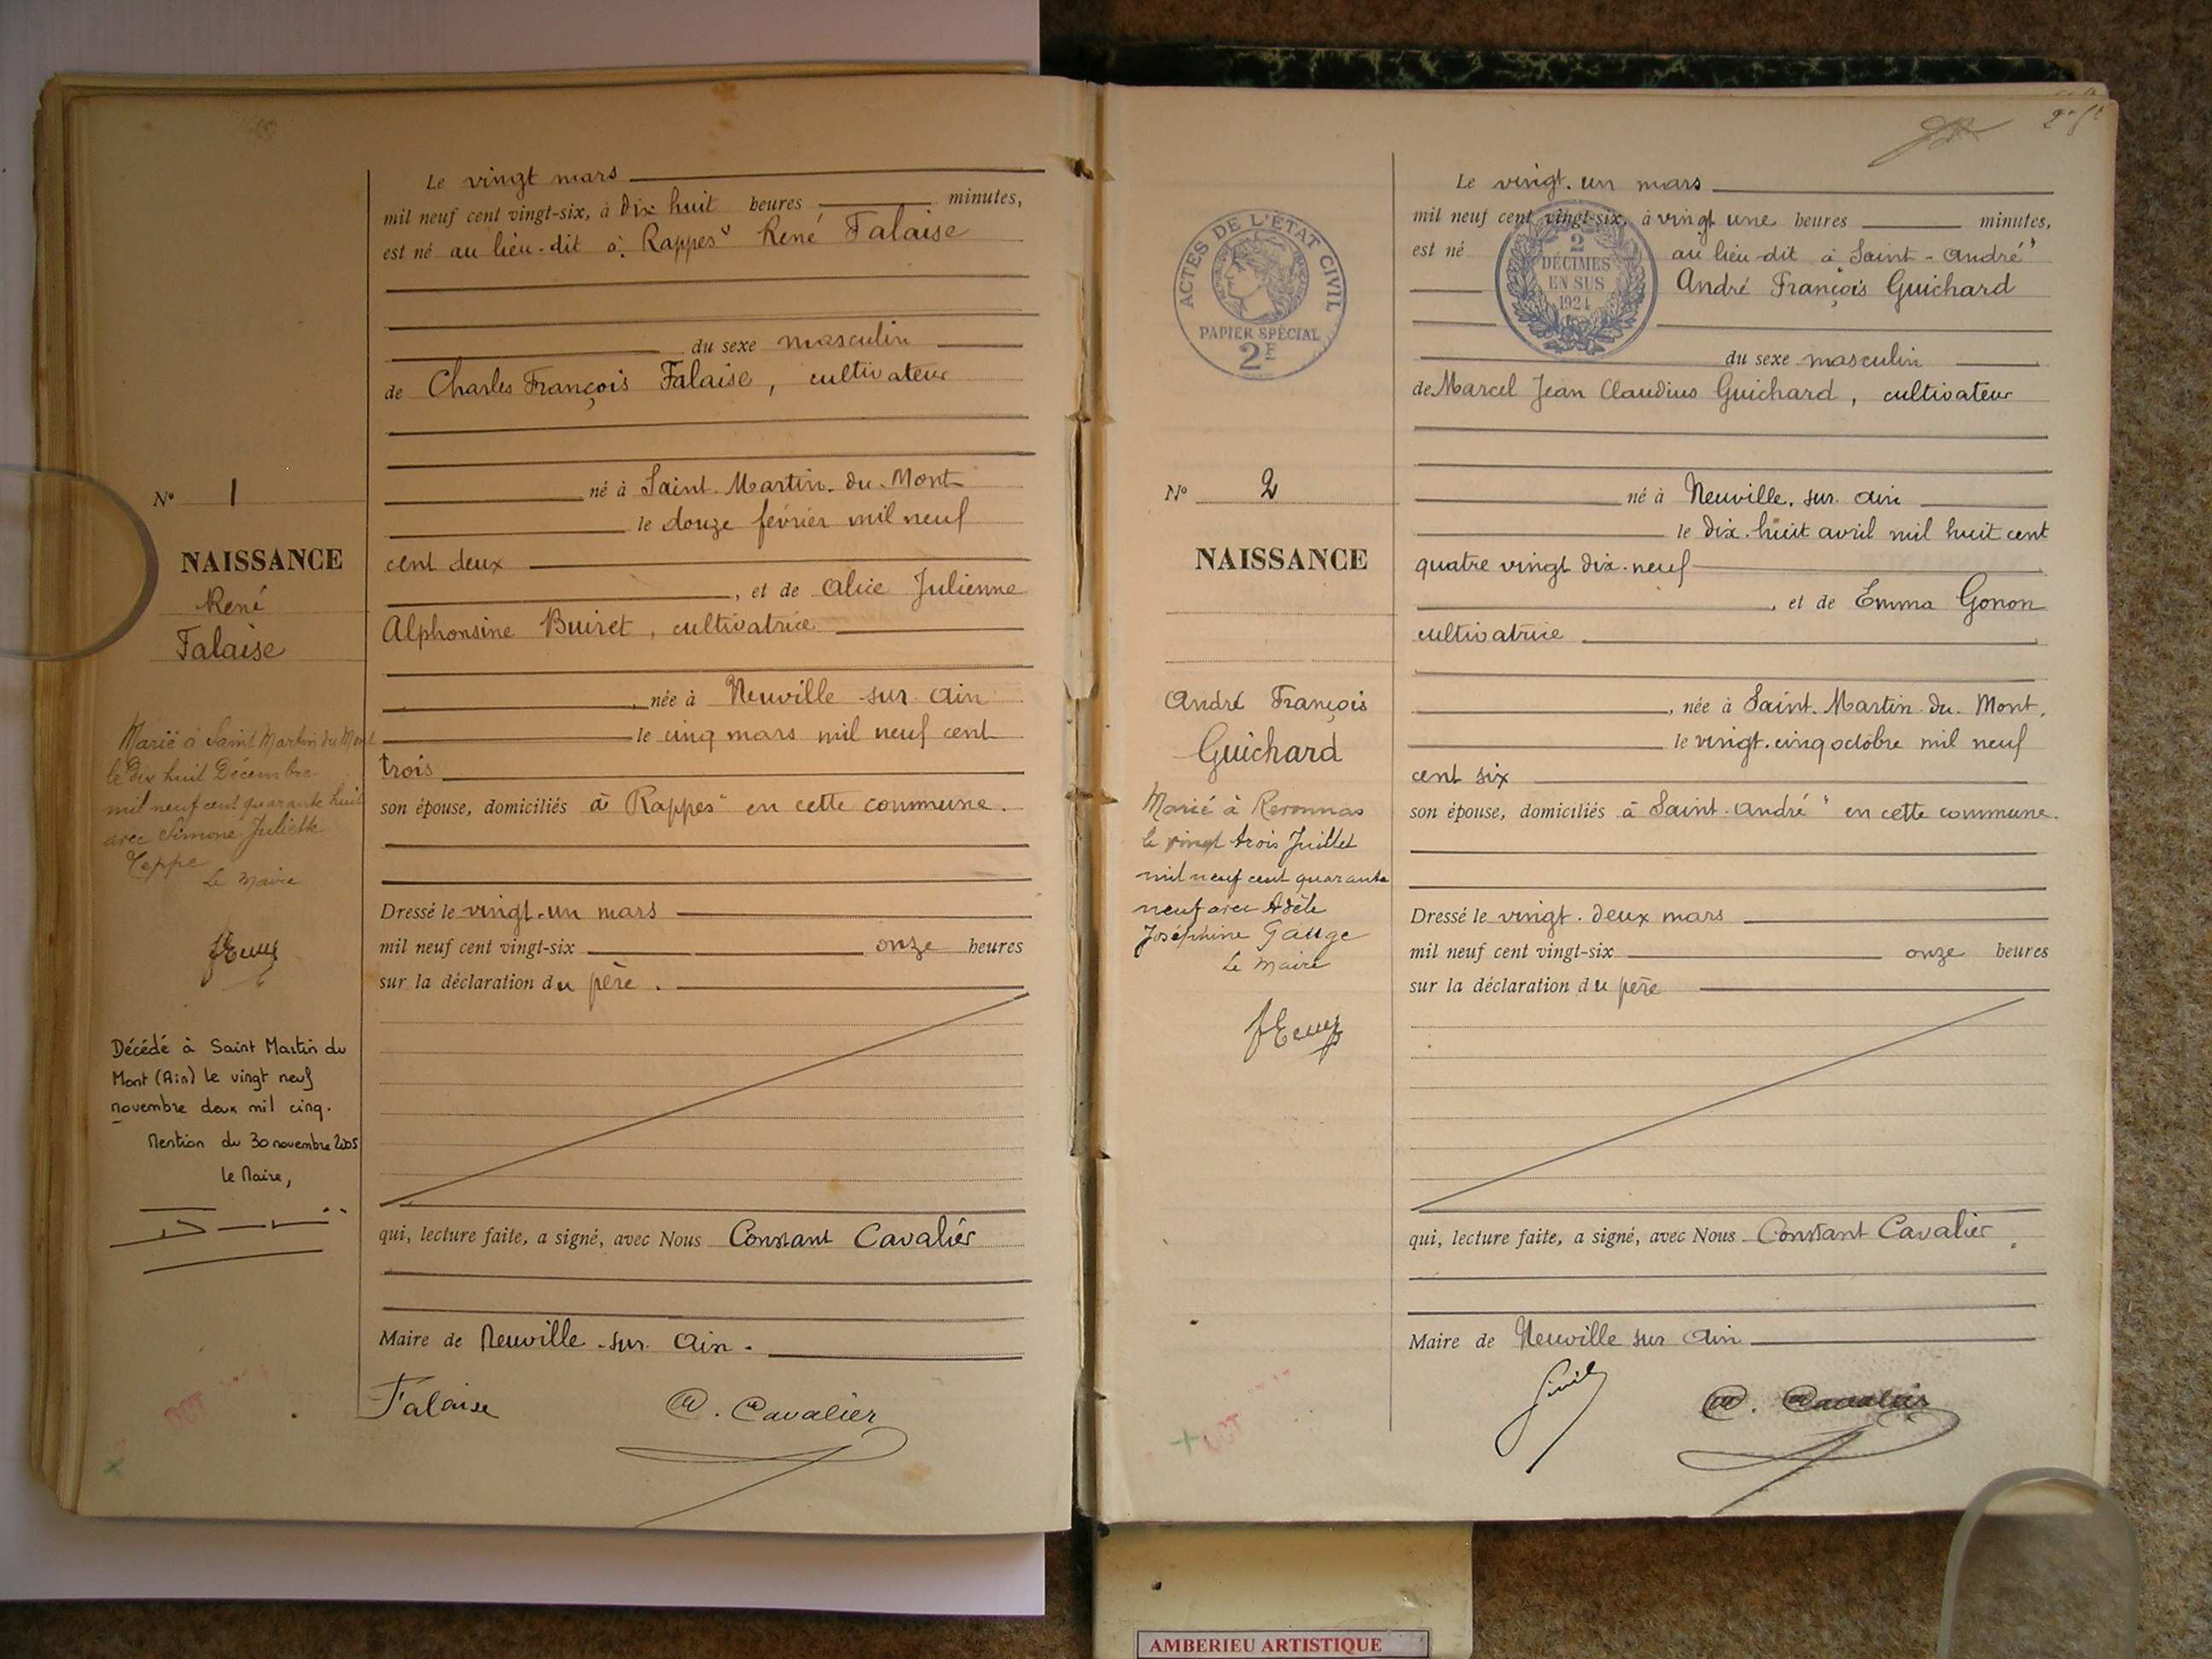 Le vingt mars
mil neuf cent vingt-six, à dix huit heures minutes,
est né au lieu-dit à "Rappes" René Falaise
du sexe masculin
de Charles François Falaise, cultivateur
né à Saint-Martin-du-Mont
le douze février mil neuf
cent deux
, et de Alice Julienne
Alphonsine Buiret, cultivatrice
, née à Neuville-sur-Ain
le cinq mars mil neuf cent
trois
son épouse, domiciliés à "Rappes" en cette commune.
Dressé le vingt-un mars
mil neuf cent vingt-six onze heures
sur la déclaration du père.
qui, lecture faite, a signé, avec Nous Constant Cavalier
Maire de Neuville-sur-Ain.
Falaise
Cavalier
N° 1
NAISSANCE
René
Falaise
Marié à Saint Martin du Mont
le Dix huit Décembre
mil neuf cent quarante huit
avec Simone Juliette
Teppe
Le Maire
Décédé à Saint Martin du
Mont (Ain) le vingt neuf
novembre deux mil cinq.
Mention du 30 novembre 2005
Le Maire,
ACTES DE L'ÉTAT CIVIL
PAPIER SPÉCIAL
2F
N° 2
NAISSANCE
André François
Guichard
Marié à Péronnas
le vingt trois Juillet
mil neuf cent quarante
neuf avec Adèle
Joséphine Gauge
Le Maire
Le vingt-un mars
mil neuf cent vingt-six, à vingt une heures minutes,
est né au lieu-dit à "Saint-André"
André François Guichard
2
DÉCIMES
EN SUS
1924
du sexe masculin
de Marcel Jean Claudius Guichard, cultivateur
né à Neuville-sur-Ain
le dix-huit avril mil huit cent
quatre vingt dix-neuf
, et de Emma Gonon
cultivatrice
, née à Saint-Martin-du-Mont,
le vingt-cinq octobre mil neuf
cent six
son épouse, domiciliés à "Saint-André" en cette commune.
Dressé le vingt-deux mars
mil neuf cent vingt-six onze heures
sur la déclaration du père
qui, lecture faite, a signé, avec Nous Constant Cavalier.
Maire de Neuville sur Ain
Cavalier
AMBERIEU ARTISTIQUE